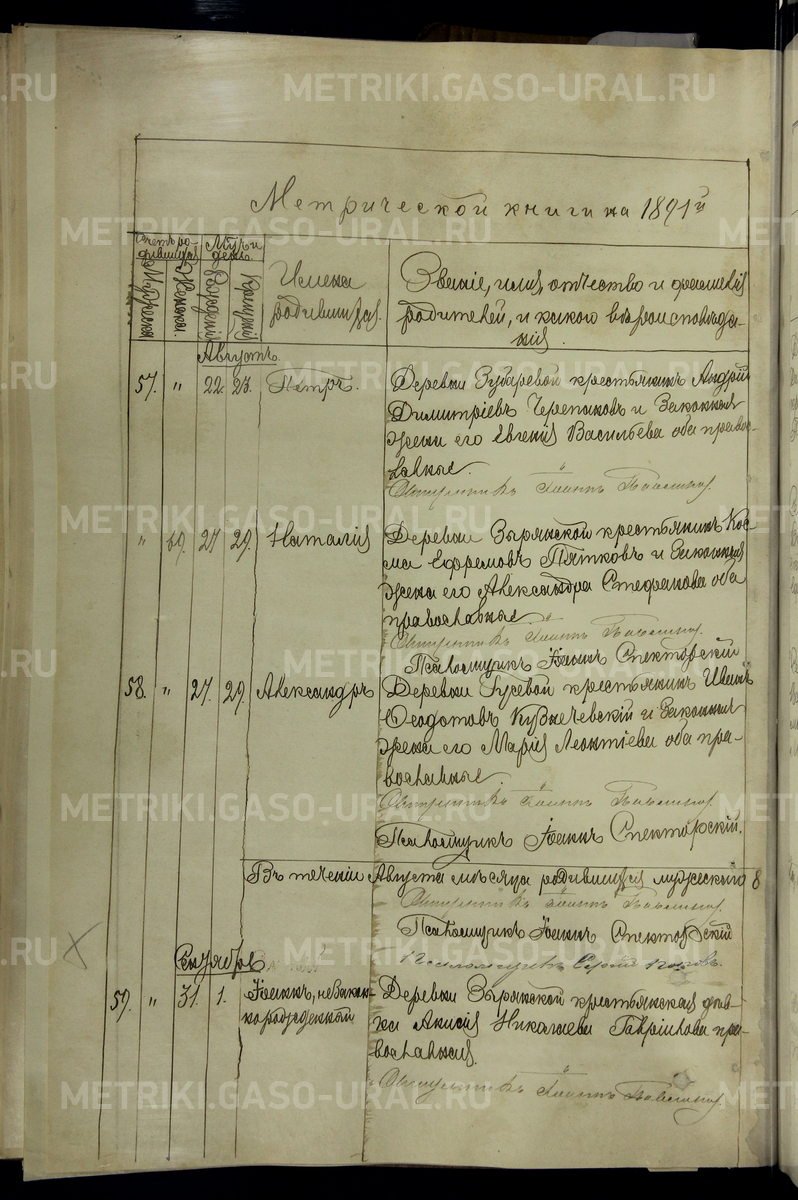 METRIKI.GASO-URAL.RU
Метрической книги на 1891й
Счетъ ро-
дившихся
Мужеска
Женска.
Мѣс. и
день.
Рожденія
Крещенія
Имена
родившихся.
Званіе, имя, отчество и фамилія
родителей, и какого вѣроисповѣда-
нія.
Августъ.
57. " 22. 23. Петръ.
Деревни Зубаревой крестьянинъ Андрей
Димитріевъ Черепановъ и Законная
жена его Евгенія Васильева оба правос-
лавные.
Священникъ Іоаннъ
" 69. 27 29. Наталія
Деревни Зырянской крестьянинъ Кос-
ма Ефремовъ Пятковъ и Законная
жена его Александра Стефанова оба
православные.
Священникъ Іоаннъ
Псаломщикъ Іоаннъ Спекторскій
58. " 27. 29. Александръ
Деревни Гусевой крестьянинъ Иванъ
Ѳеодотовъ Кузнечевскій и Законная
жена его Марія Леонтіева оба пра-
вославные.
Священникъ Іоаннъ
Псаломщикъ Іоаннъ Спекторскій.
Въ теченіи Августа мѣсяца родившихся мужескаго 8
Священникъ Іоаннъ
Псаломщикъ Іоаннъ Спекторскій
Псаломщикъ Сергій Поповъ.
Сентябрь
59. " 31. 1. Іоаннъ, незакон-
норожденный
Деревни Зырянской крестьянская дѣв-
ка Анисія Николаева Гаврилова пра-
вославная.
Священникъ Іоаннъ